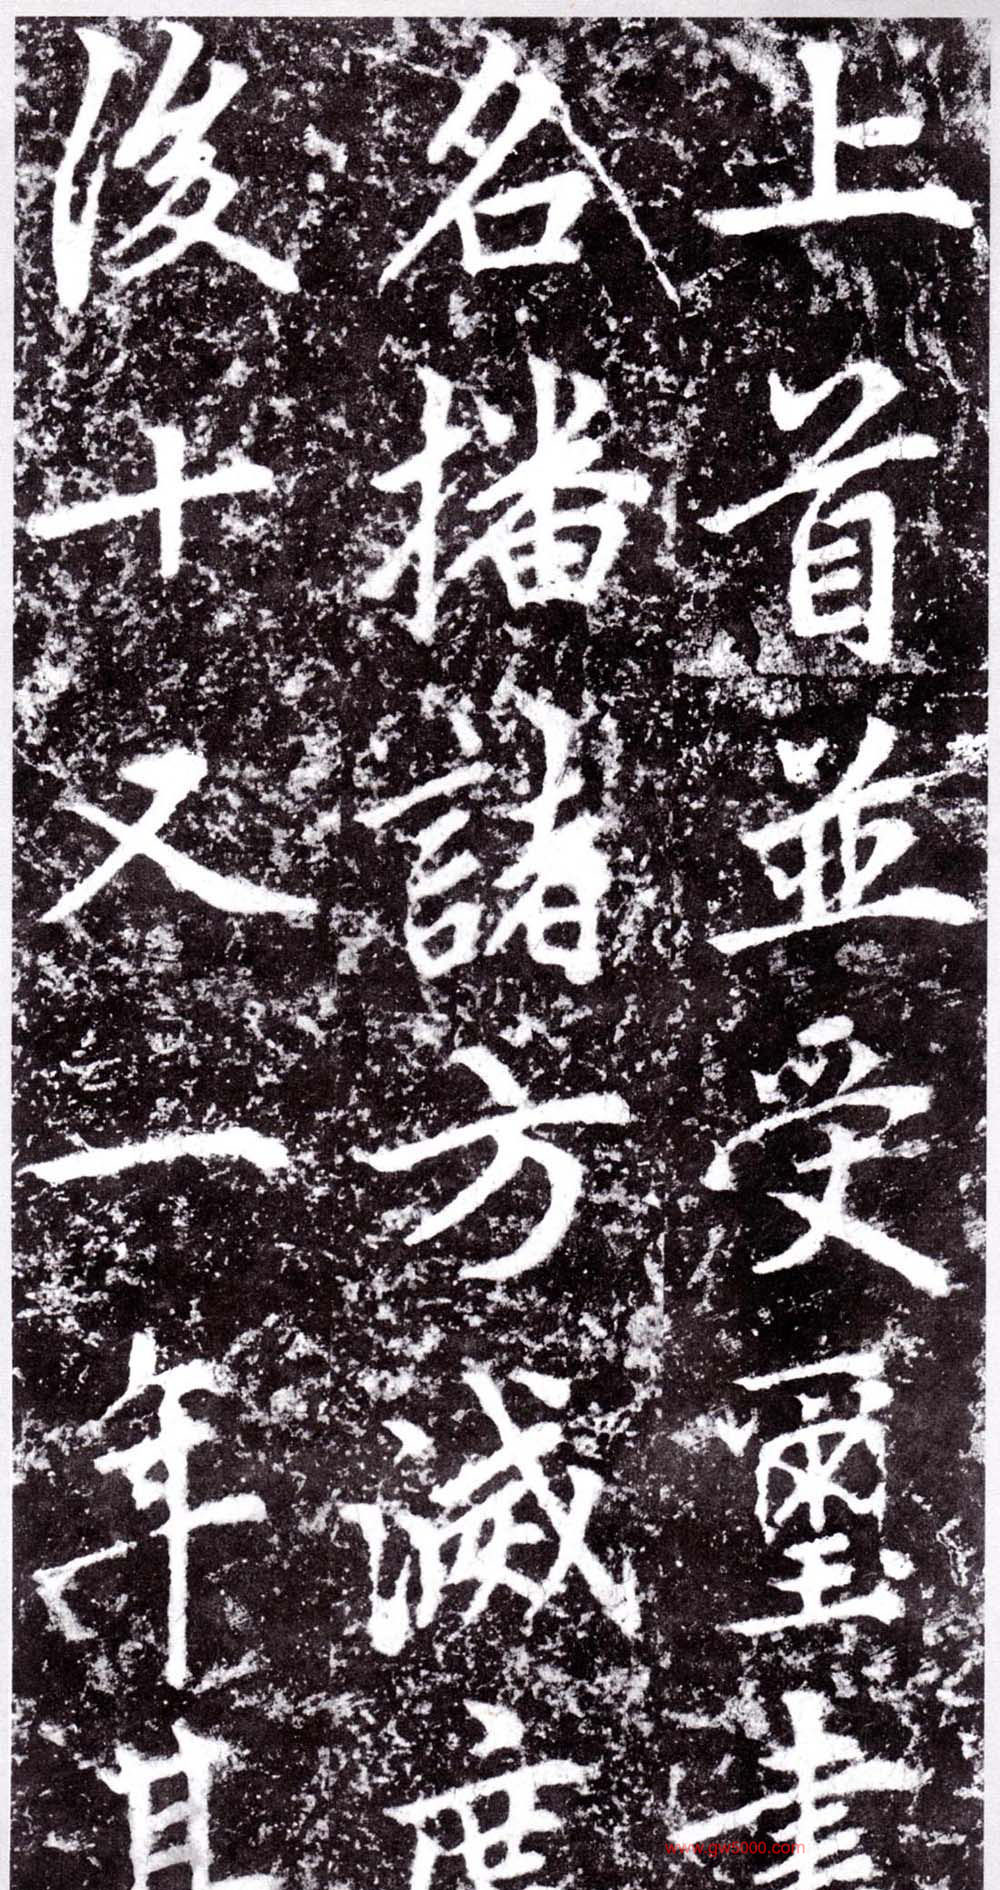 上首並受璽書
名播諸方滅度
後十又一年其
www.gw5000.com